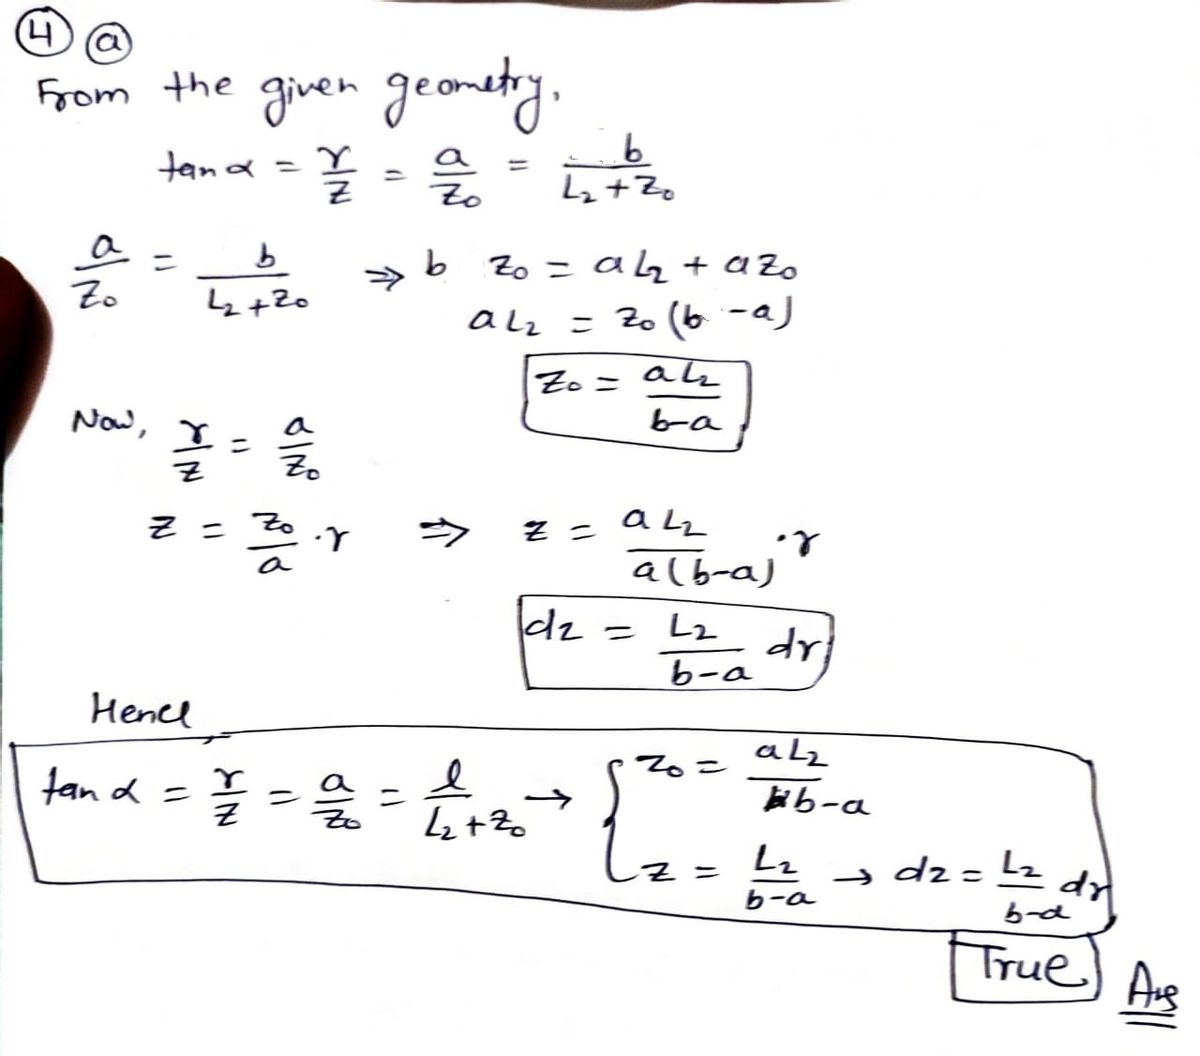 4 a
From the given geometry,
tan α = r/z = a/z₀ = b/(L₂+z₀)
a/z₀ = b/(L₂+z₀) ⇒ b z₀ = aL₂ + az₀
aL₂ = z₀(b-a)
z₀ = aL₂/(b-a)
Now, r/z = a/z₀
z = z₀/a · r ⇒ z = aL₂/(a(b-a)) · r
dz = L₂/(b-a) dr
Hence,
tan α = r/z = a/z₀ = l/(L₂+z₀) → { z₀ = aL₂/(b-a)
z = L₂/(b-a) → dz = L₂/(b-a) dr
True
Ans